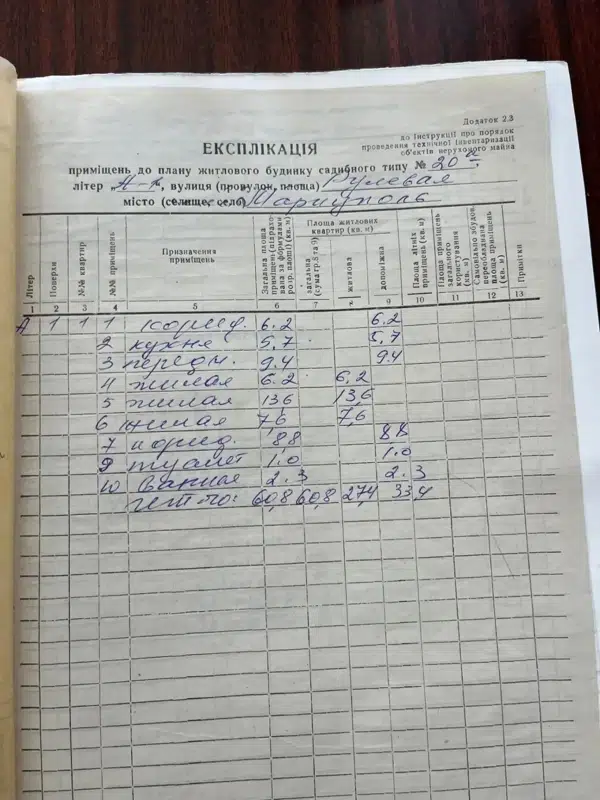 Додаток 2.3
до Інструкції про порядок
проведення технічної інвентаризації
об'єктів нерухомого майна
ЕКСПЛІКАЦІЯ
приміщень до плану житлового будинку садибного типу № 20а
літер „А-1", вулиця (провулок, площа) Рулевая
місто (селище, село) Мариуполь
Літер Поверхи №№ квартир №№ приміщень Призначення приміщень Загальна площа приміщень (підрахована за формулами розр. площі) (кв. м) Площа житлових квартир (кв. м) загальна (сума гр. 8 та 9) житлова допоміжна Площа літніх приміщень (кв. м) Площа приміщень загального користування (кв. м) Самовільно збудов. переобладнана площа приміщень (кв. м) Примітки
1 2 3 4 5 6 7 8 9 10 11 12 13
А 1 1 1 корид. 6.2 6.2
2 кухня 5,7 5,7
3 передн. 9.4 9.4
4 жилая 6.2 6,2
5 жилая 13,6 13,6
6 жилая 7,6 7,6
7 корид. 8,8 8,8
9 туалет 1.0 1.0
10 ванная 2.3 2.3
Итого: 60,8 60,8 27,4 33,4